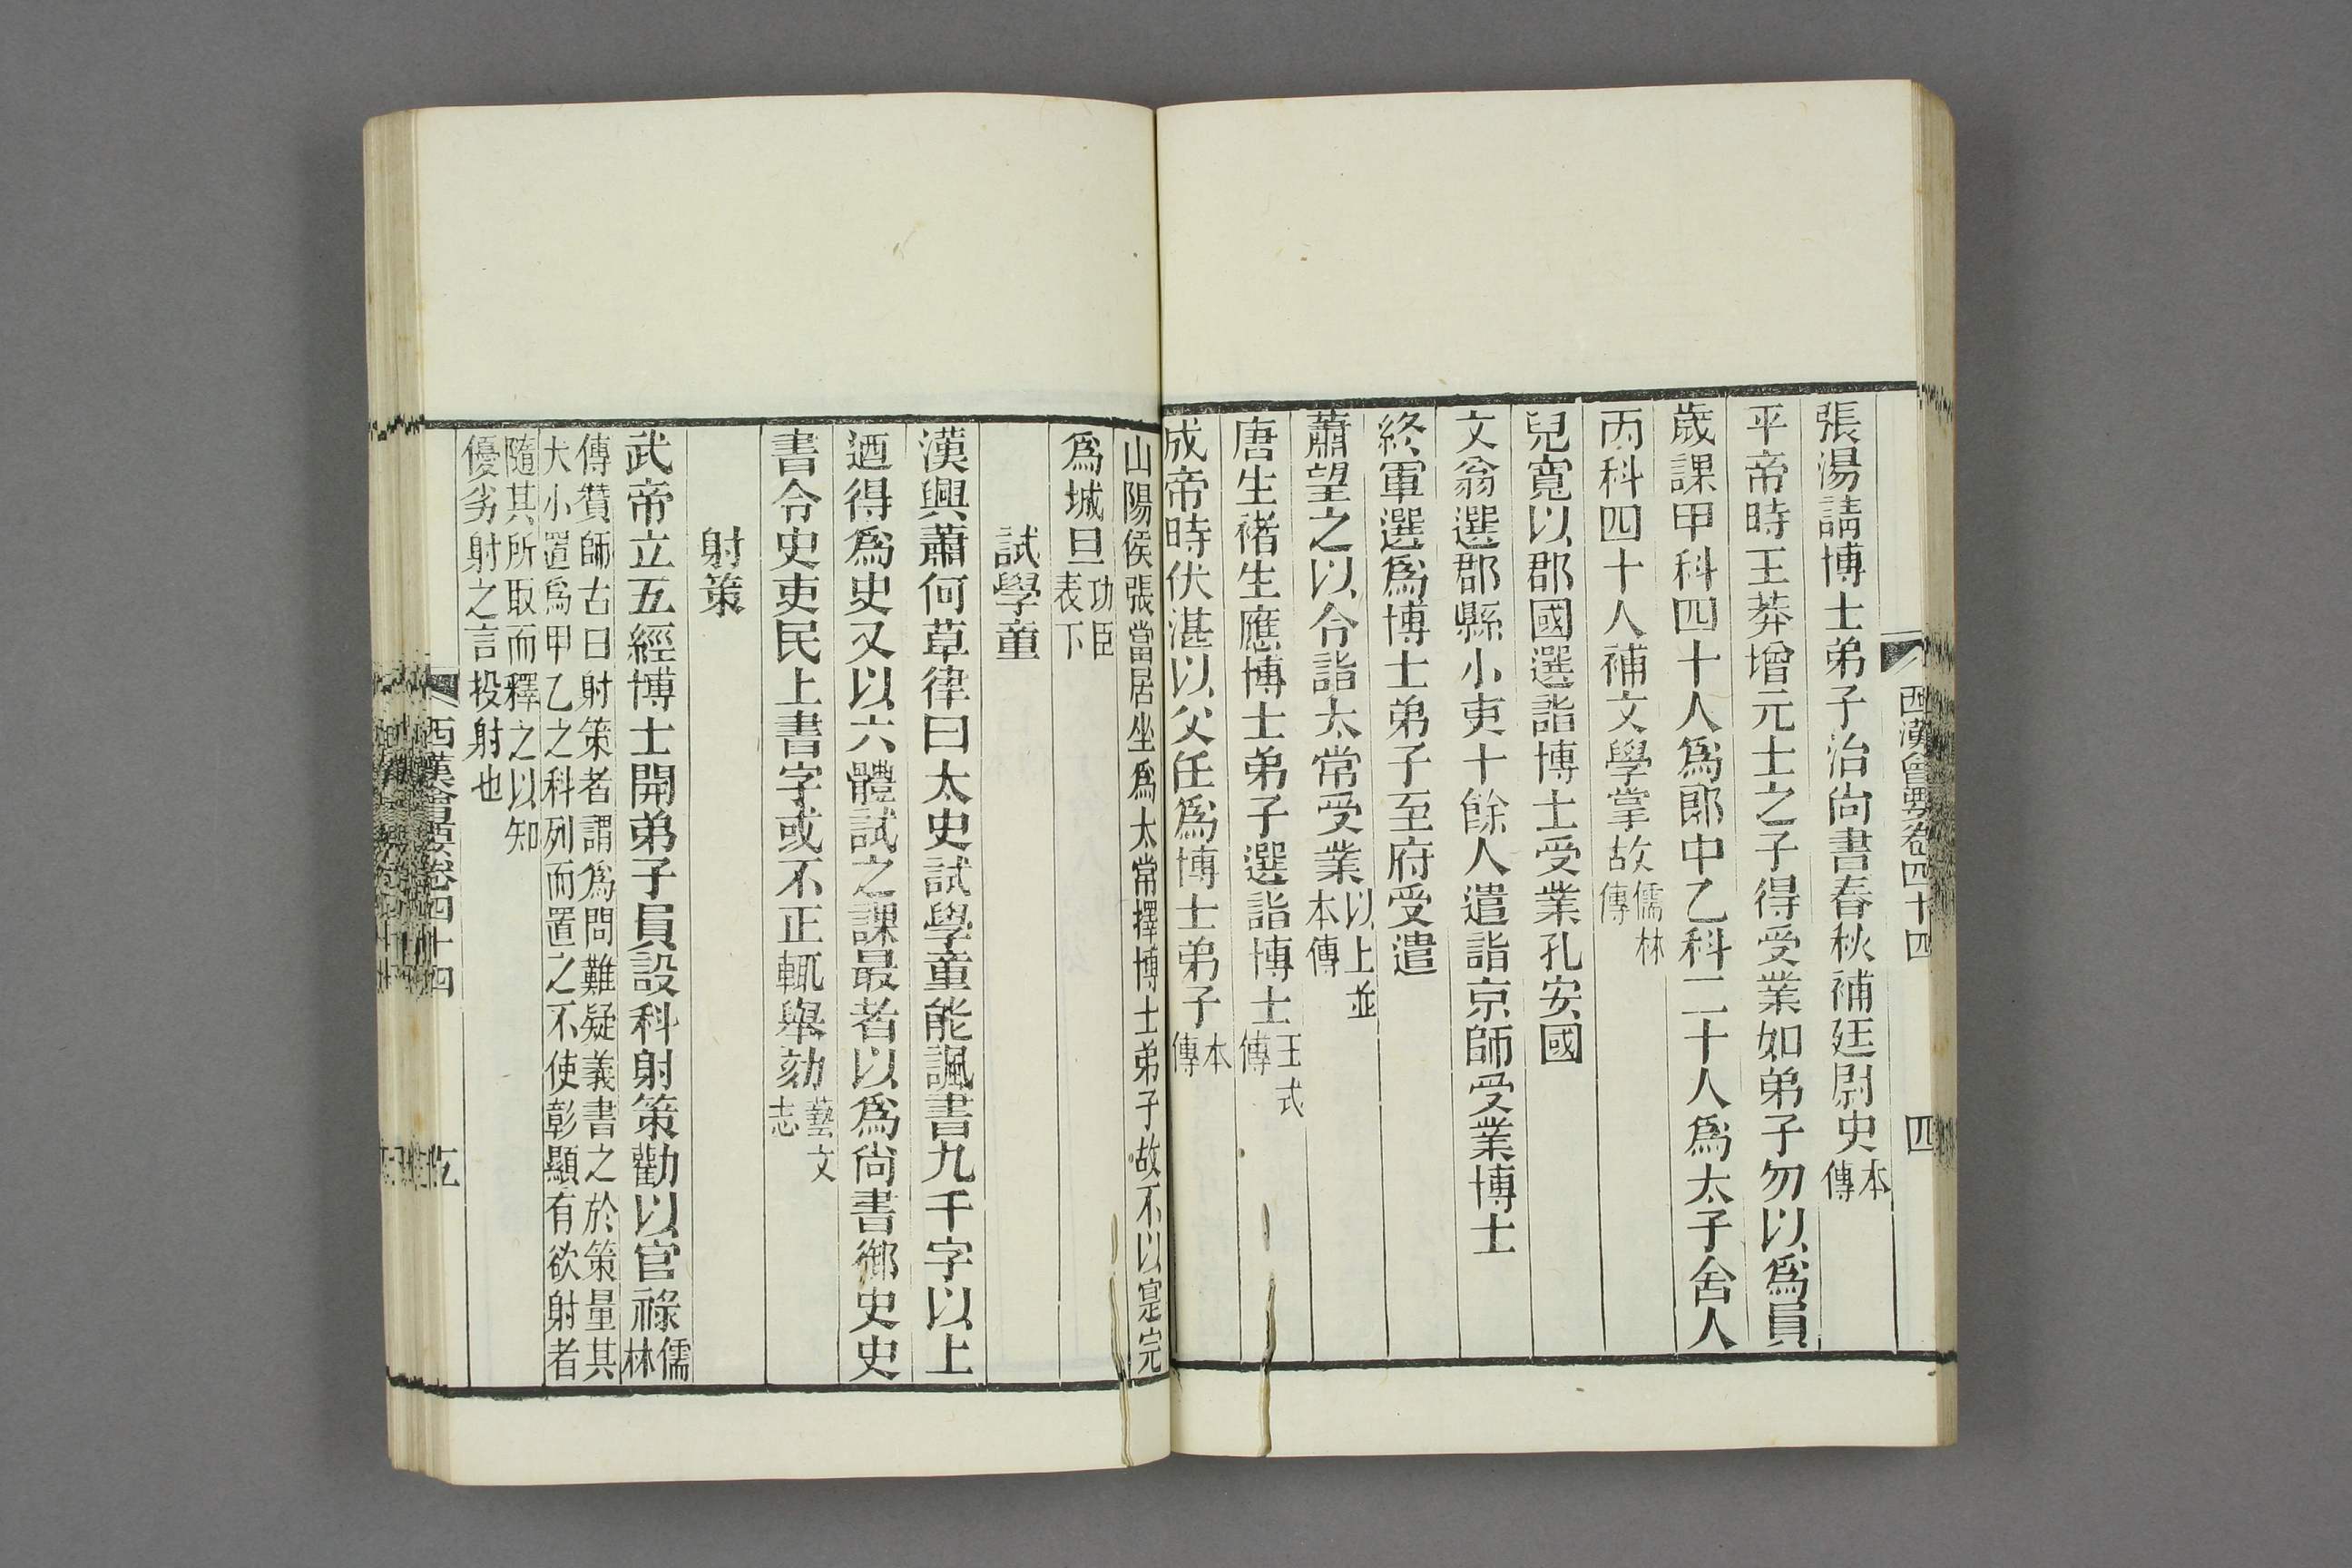 西漢會要卷四十四
四
張湯請博士弟子治尚書春秋補廷尉史本傳
平帝時王莽增元士之子得受業如弟子勿以爲員
歲課甲科四十人爲郎中乙科二十人爲太子舍人
丙科四十人補文學掌故儒林傳
兒寬以郡國選詣博士受業孔安國
文翁選郡縣小吏十餘人遣詣京師受業博士
終軍選爲博士弟子至府受遣
蕭望之以令詣太常受業以上並本傳
唐生褚生應博士弟子選詣博士王式傳
成帝時伏湛以父任爲博士弟子本傳
山陽侯張當居坐爲太常擇博士弟子故不以寔完
爲城旦功臣表下
試學童
漢興蕭何草律曰太史試學童能諷書九千字以上
迺得爲史又以六體試之課最者以爲尚書御史史
書令史吏民上書字或不正輒舉劾藝文志
射策
武帝立五經博士開弟子員設科射策勸以官祿儒林
傳贊師古曰射策者謂爲問難疑義書之於策量其
大小置爲甲乙之科列而置之不使彰顯有欲射者
隨其所取而釋之以知
優劣射之言投射也
西漢會要卷四十四